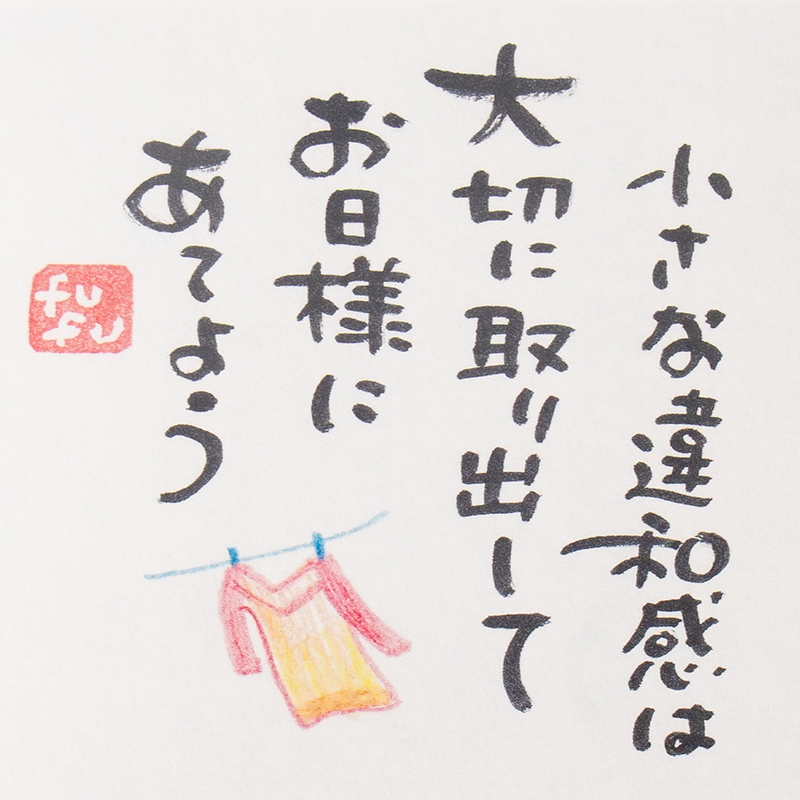 小さな違和感は
大切に取り出して
お日様に
あてよう
fu
fu